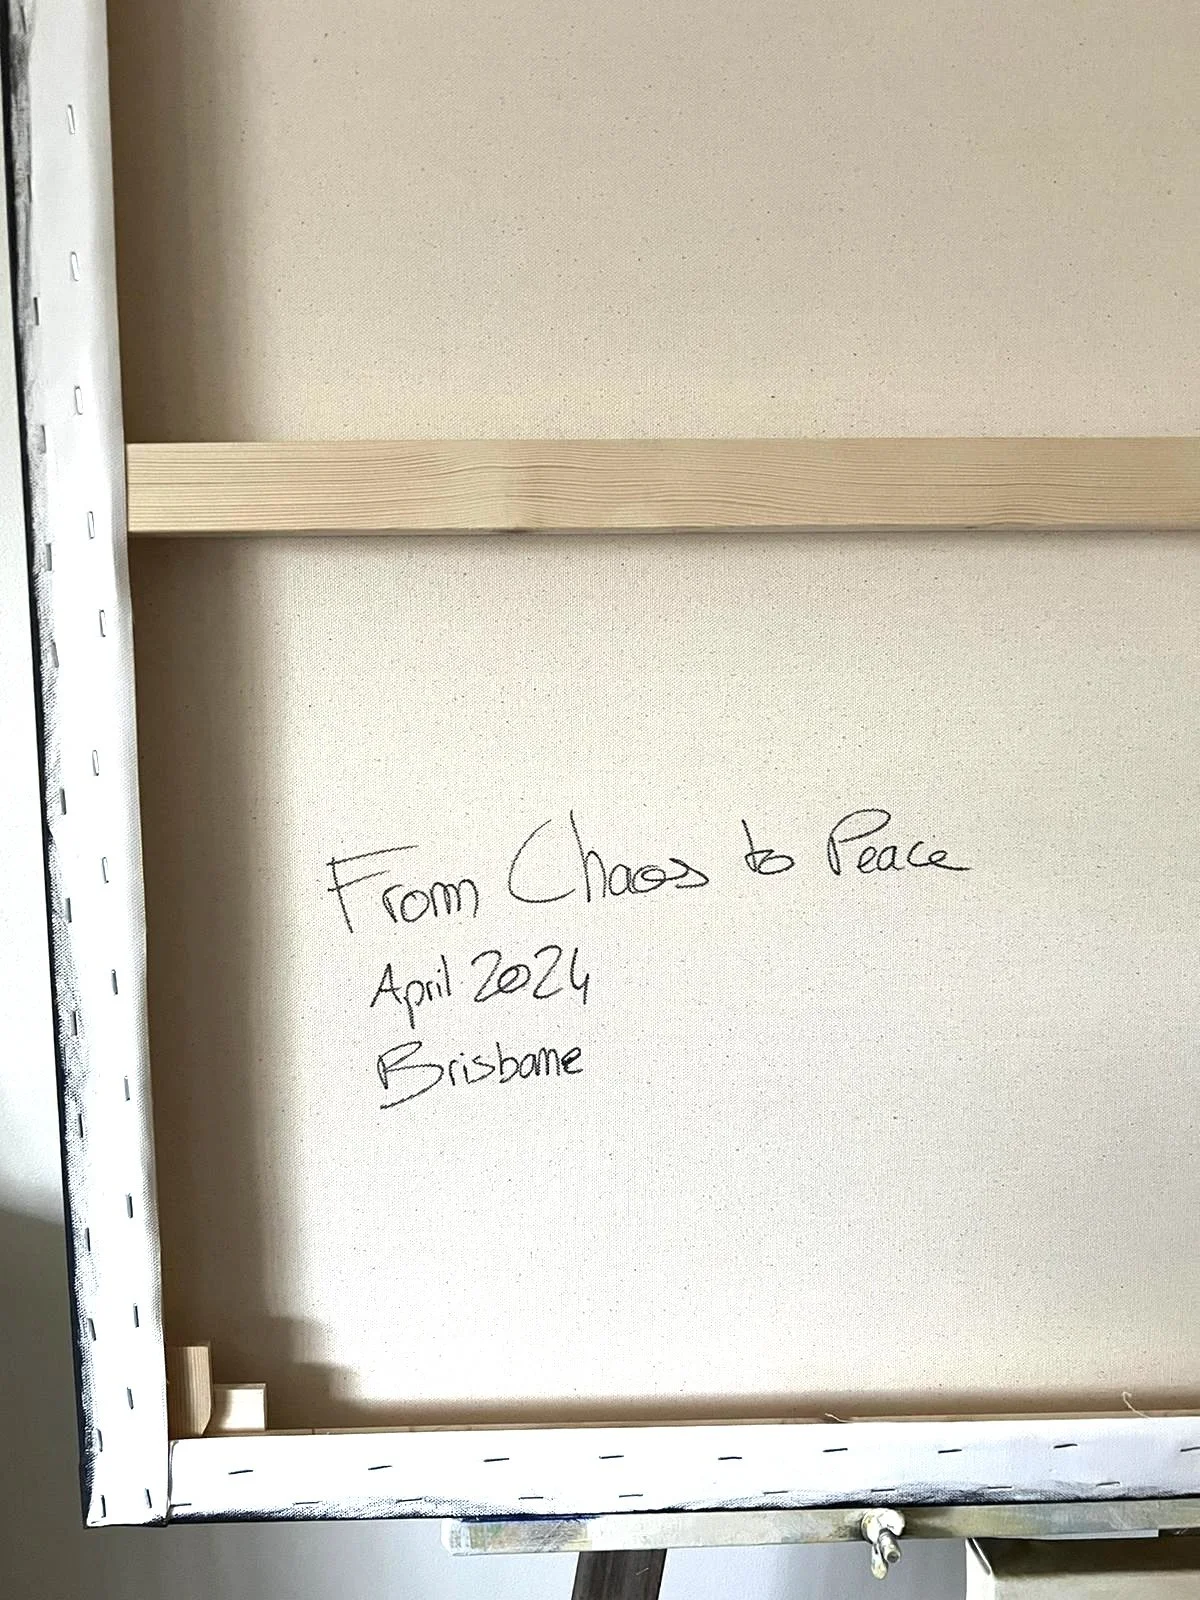 From Chaos to Peace
April 2024
Brisbane